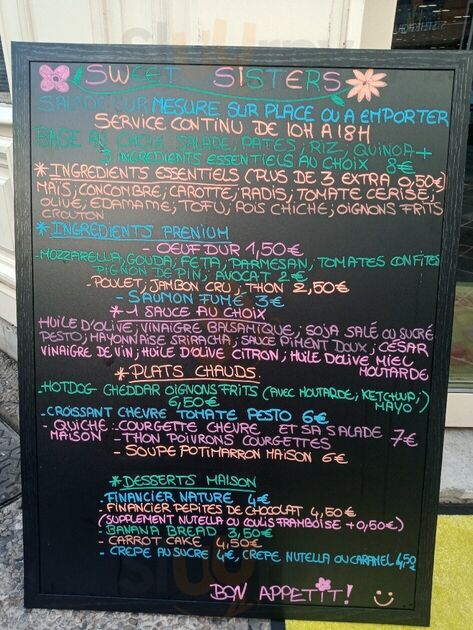 SWEET SISTERS
SALADE SUR MESURE SUR PLACE OU A EMPORTER
SERVICE CONTINU DE 10H A 18H
BASE AU CHOIX SALADE, PATES, RIZ, QUINOA +
3 INGREDIENTS ESSENTIELS AU CHOIX 8€
*INGREDIENTS ESSENTIELS (PLUS DE 3 EXTRA 0,50€)
MAIS, CONCOMBRE, CAROTTE, RADIS, TOMATE CERISE,
OLIVE, EDAMAME, TOFU, POIS CHICHE, OIGNONS FRITS
CROUTON
*INGREDIENTS PREMIUM
- OEUF DUR 1,50€
-MOZZARELLA, GOUDA, FETA, PARMESAN, TOMATES CONFITES
PIGNON DE PIN, AVOCAT 2€
-POULET, JAMBON CRU, THON 2,50€
- SAUMON FUMÉ 3€
*1 SAUCE AU CHOIX
HUILE D'OLIVE, VINAIGRE BALSAMIQUE, SOJA SALÉ OU SUCRÉ
PESTO, MAYONNAISE SRIRACHA, SAUCE PIMENT DOUX, CÉSAR
VINAIGRE DE VIN, HUILE D'OLIVE CITRON, HUILE D'OLIVE MIEL
MOUTARDE
*PLATS CHAUDS
-HOTDOG CHEDDAR OIGNONS FRITS (AVEC MOUTARDE, KETCHUP,
MAYO)
6,50€
-CROISSANT CHEVRE TOMATE PESTO 6€
- QUICHE MAISON -COURGETTE CHEVRE ET SA SALADE 7€
-THON POIVRONS COURGETTES
- SOUPE POTIMARRON MAISON 6€
*DESSERTS MAISON
-FINANCIER NATURE 4€
-FINANCIER PEPITES DE CHOCOLAT 4,50€
(SUPPLEMENT NUTELLA OU COULIS FRAMBOISE +0,50€)
-BANANA BREAD 3,50€
- CARROT CAKE 4,50€
- CREPE AU SUCRE 4€, CREPE NUTELLA OU CARAMEL 4,50
BON APPETIT!